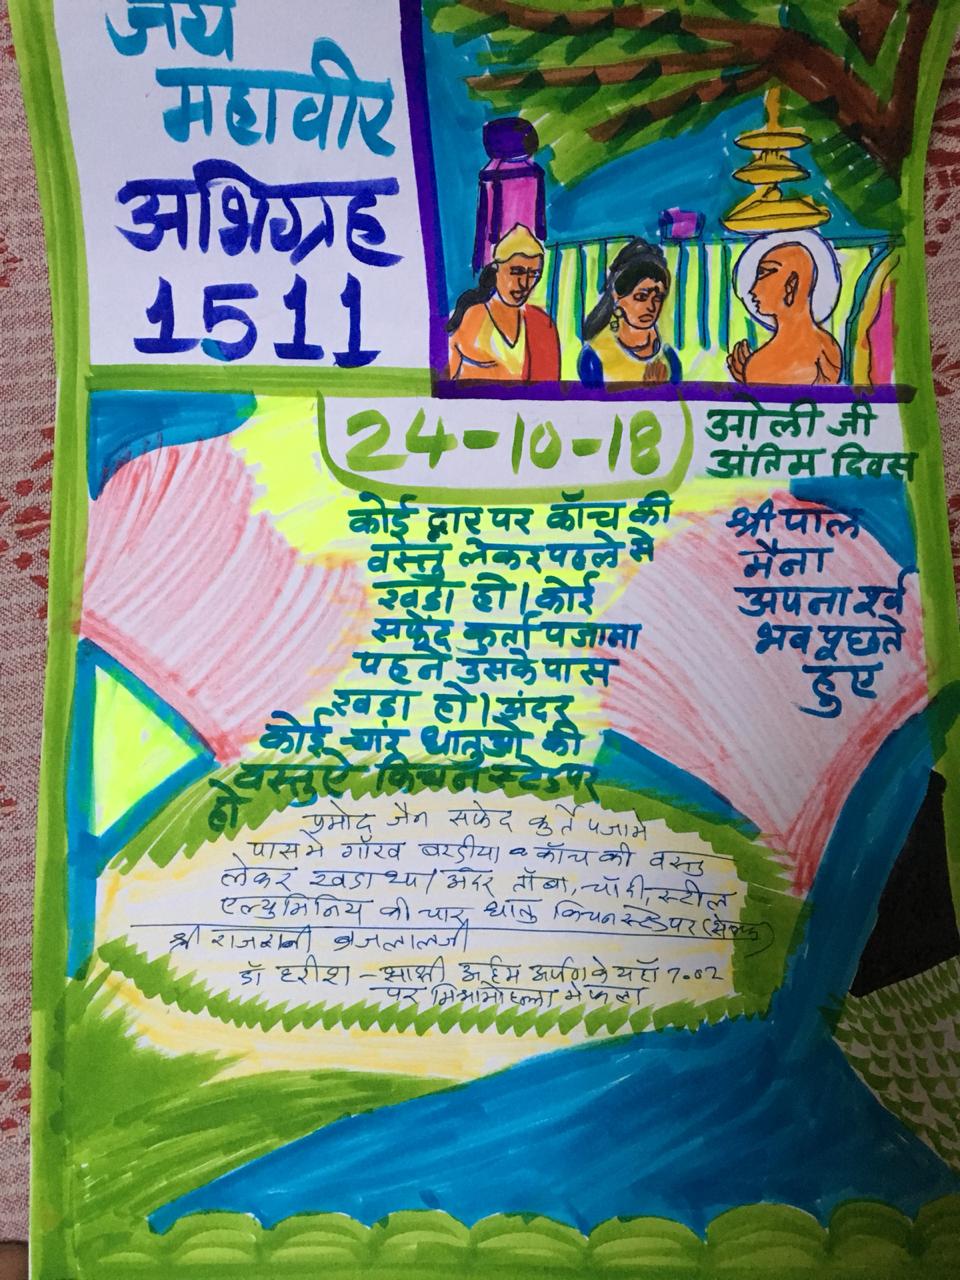 जय
महावीर
अभिग्रह
1511
24-10-18
ओली जी
अंतिम दिवस
कोई द्वार पर काँच की
वस्तु लेकर पहले से
खडा हो। कोई
सफेद कुर्ता पजामा
पहने उसके पास
खडा हो। अंदर
कोई चार धातुओ की
वस्तुऐ किचन स्टेडपर
हो
श्रीपाल
मैना
अपना पूर्व
भव पूछते
हुए
प्रमोद जैन सफेद कुर्ते पजामे
पास मे गौरव बरडीया काँच की वस्तु
लेकर खडा था। अंदर ताँबा, चाँदी, स्टील
एल्युमिनिय की चार धातु किचन स्टेडपर
श्री राजरानी ब्रजलालजी
डॉ हरीश - साक्षी अर्हम अर्पण के यहाँ 7.02
पर मिश्रामोहल्ला मे फला